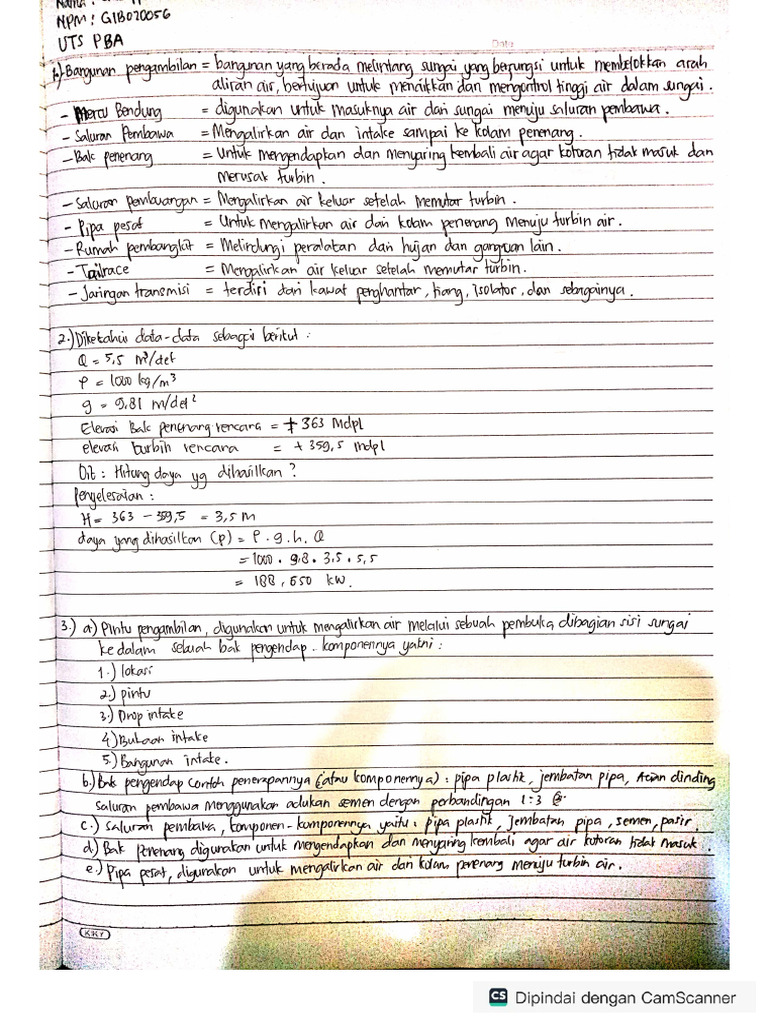 Nama :
NPM : G1B020056
UTS PBA
Date
1.) Bangunan pengambilan = bangunan yang berada melintang sungai yang berfungsi untuk membelokkan arah
aliran air, bertujuan untuk menaikkan dan mengontrol tinggi air dalam sungai.
- Mercu Bendung = digunakan untuk masuknya air dari sungai menuju saluran pembawa.
- Saluran Pembawa = Mengalirkan air dari intake sampai ke kolam penenang.
- Bak penenang = Untuk mengendapkan dan menyaring kembali air agar kotoran tidak masuk dan
merusak turbin.
- Saluran pembuangan = Mengalirkan air keluar setelah memutar turbin.
- Pipa pesat = Untuk mengalirkan air dari kolam penenang Menuju turbin air.
- Rumah pembangkit = Melindungi peralatan dari hujan dan gangguan lain.
- Tailrace = Mengalirkan air keluar setelah memutar turbin.
- Jaringan transmisi = terdiri dari kawat penghantar, tiang, isolator, dan sebagainya.
2.) Diketahui data-data sebagai berikut :
Q = 5,5 m³/det
ρ = 1000 kg/m³
g = 9,81 m/det²
Elevasi Bak penenang rencana = + 363 Mdpl
elevasi turbin rencana = + 359,5 mdpl
Dit : Hitung daya yg dihasilkan ?
Penyelesaian :
H = 363 - 359,5 = 3,5 M
daya yang dihasilkan (p) = ρ . g . h . Q
= 1000 . 9,8 . 3,5 . 5,5
= 188,650 kw.
3.) a) Pintu pengambilan, digunakan untuk mengalirkan air melalui sebuah pembuka dibagian sisi sungai
kedalam sebuah bak pengendap. komponennya yakni :
1.) lokasi
2.) pintu
3.) Drop intake
4) Bukaan intake
5.) Bangunan intake.
b.) Bak pengendap contoh penerapannya (atau komponennya) : pipa plastik, jembatan pipa, dinding
saluran pembawa menggunakan adukan semen dengan perbandingan 1:3
c.) Saluran pembawa, komponen-komponennya yaitu : pipa plastik, jembatan pipa, semen, pasir.
d.) Bak Penenang, digunakan untuk mengendapkan dan menyaring kembali agar air kotoran tidak masuk.
e.) Pipa pesat, digunakan untuk mengalirkan air dari kolam penenang menuju turbin air.
KKY
CS Dipindai dengan CamScanner